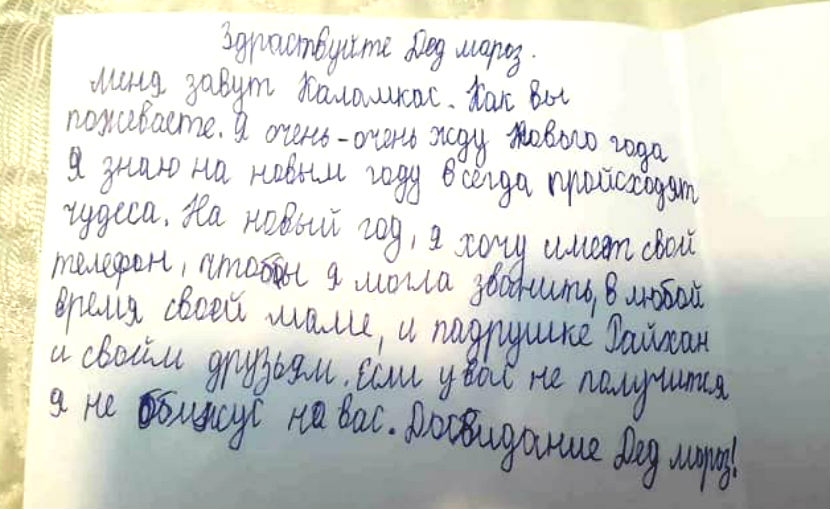 Здраствуйте Дед мороз.
Меня завут Каламкас. Как вы
пожеваете. Я очень-очень жду Нового года
Я знаю на новым году всегда происходят
чудеса. На новый год, я хочу имет свой
телефон, чтобы я могла званить, в любой
время своей маме, и падрушке Райхан
и своим друзьям. Если у вас не получится
я не обижус на вас. Досвидание Дед мороз!